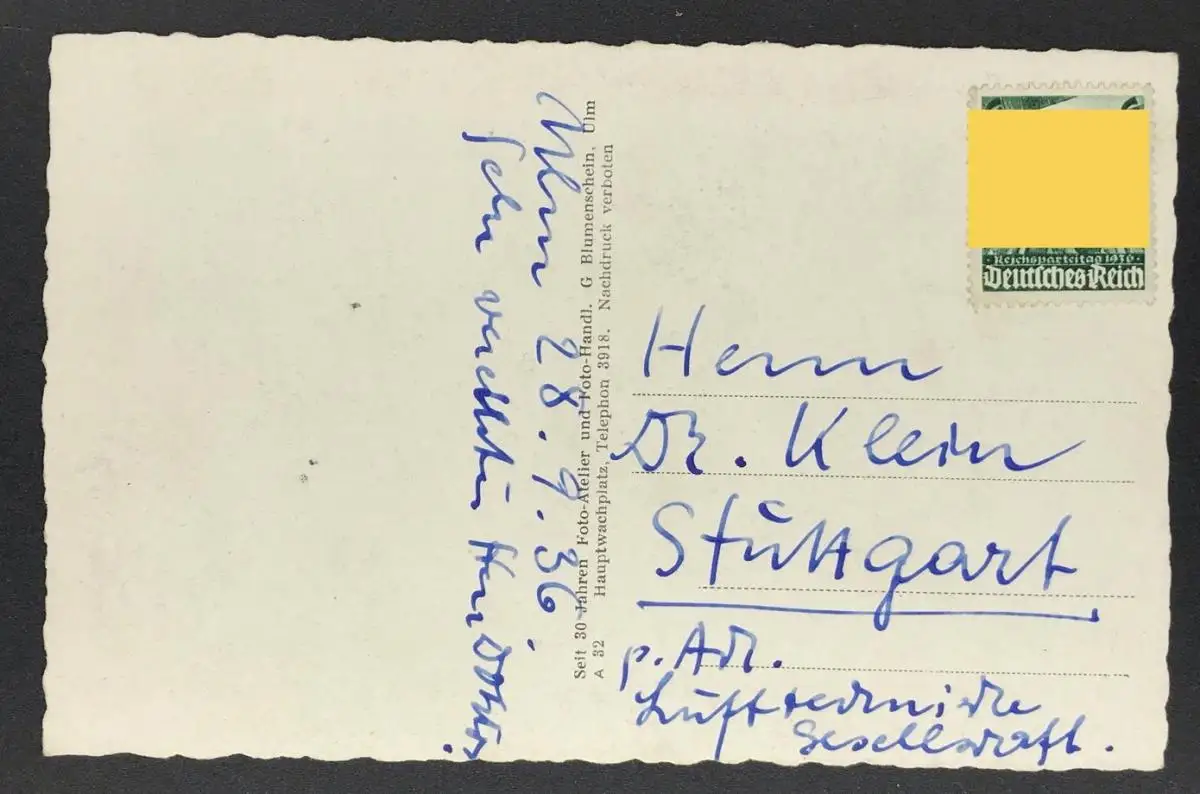 Ulm 28.9.36
Sehr verehrter Herr Doktor,
Seit 30 Jahren Foto-Atelier und Foto-Handl. G Blumenschein, Ulm
A 32 Hauptwachplatz, Telephon 3918. Nachdruck verboten
6 6
·Reichsparteitag 1936·
Deutsches Reich
Herrn
Dr. Klein
Stuttgart
p. Adr.
Lufttechnische
Gesellschaft.